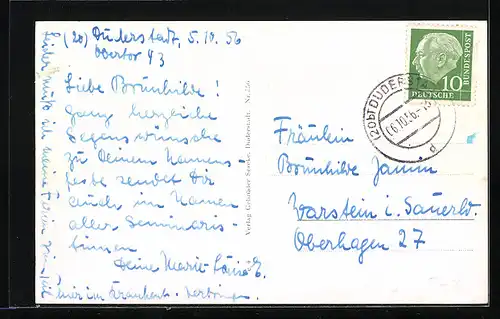 (20) Duderstadt, 5.10.56
Obertor 43
Liebe Brunhilde!
Ganz herzliche
Segenswünsche
zu Deinem Namens-
feste sendet Dir
auch im Namen
aller Seminaris-
tinnen
Deine Marie-Luise E.
Leider muß ich meine Ferien
hier im Krankenh. verbringen.
Verlag Gebrüder Duderstadt. Nr. 256
10
DEUTSCHE
BUNDESPOST
(20b) DUDERSTADT
d
Fräulein
Brunhilde Jamm
Warstein i. Sauerld.
Oberhagen 27